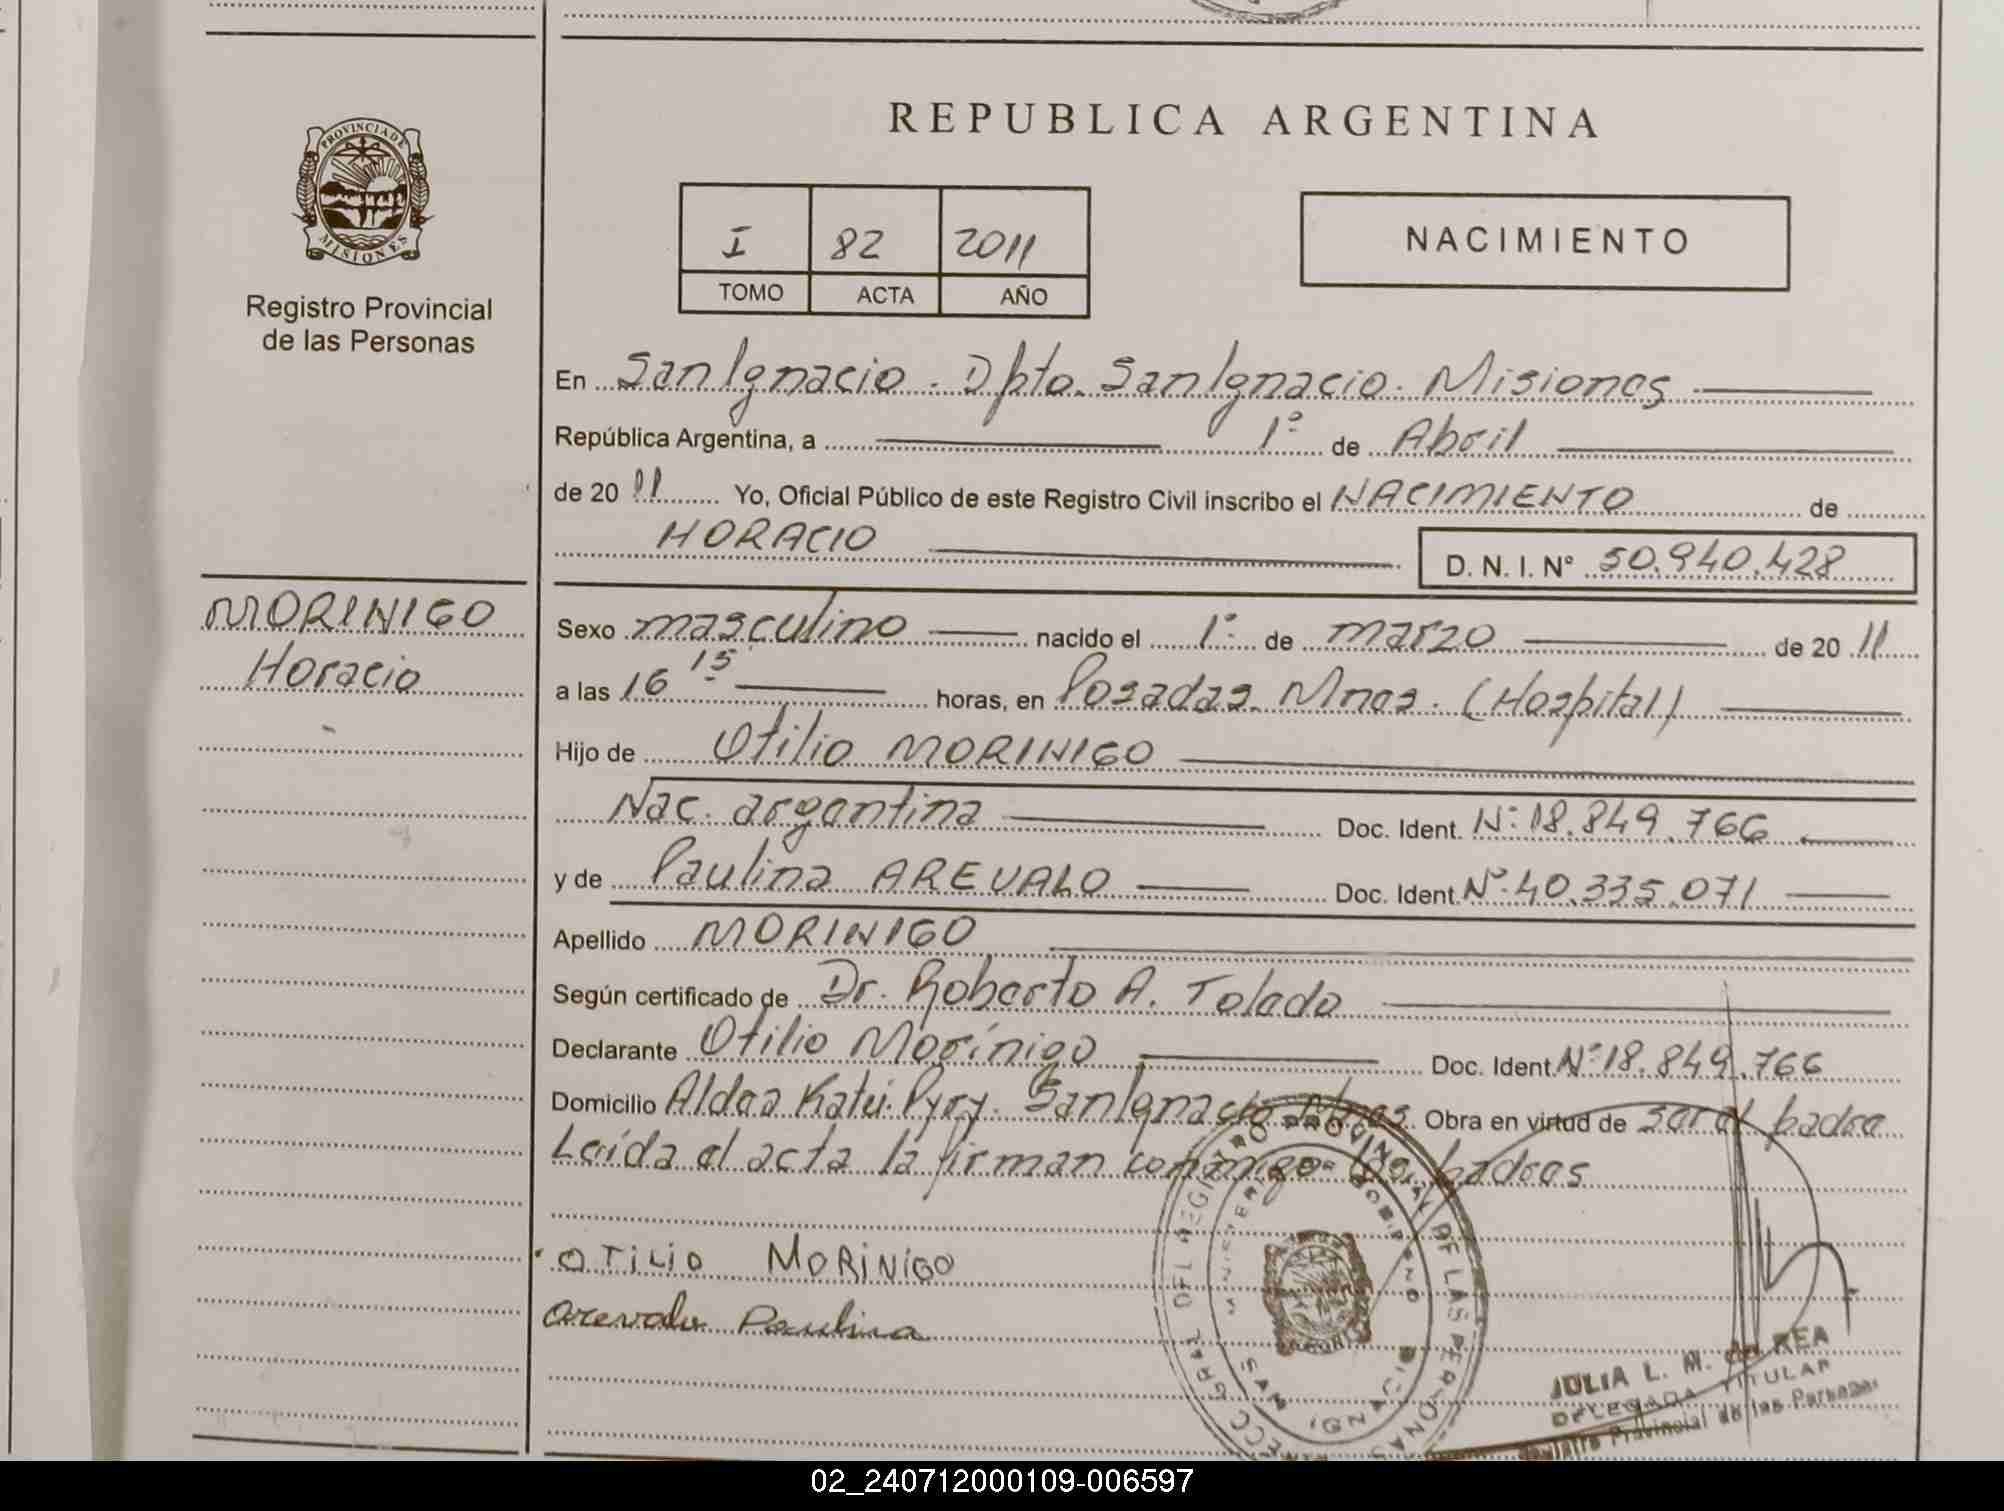 REPUBLICA ARGENTINA
PROVINCIA DE
MISIONES
Registro Provincial
de las Personas
I 82 2011
TOMO ACTA AÑO
NACIMIENTO
En San Ignacio. Dpto. San Ignacio. Misiones
República Argentina, a 1º de Abril
de 2011 Yo, Oficial Público de este Registro Civil inscribo el NACIMIENTO de
HORACIO D. N. I. Nº 50.940.428
MORINIGO
Horacio
Sexo masculino nacido el 1º de marzo de 2011
a las 16 15 horas, en Posadas. Mnes. (Hospital)
Hijo de Otilio MORINIGO
Nac. argentina Doc. Ident. Nº 18.849.766
y de Paulina AREVALO Doc. Ident. Nº 40.335.071
Apellido MORINIGO
Según certificado de Dr. Roberto A. Toledo
Declarante Otilio Morínigo Doc. Ident. Nº 18.849.766
Domicilio Aldea Katú. Pyry. San Ignacio Mnes. Obra en virtud de ser el padre
Leída el acta la firman conmigo los padres
OTILIO MORINIGO
Arevalo Paulina
GRAL DEL REGISTRO PROVINCIAL DE LAS PERSONAS
MINISTERIO DE GOBIERNO
SAN IGNACIO
JULIA L. M. de REA
DELEGADA TITULAR
Registro Provincial de las Personas
02_240712000109-006597